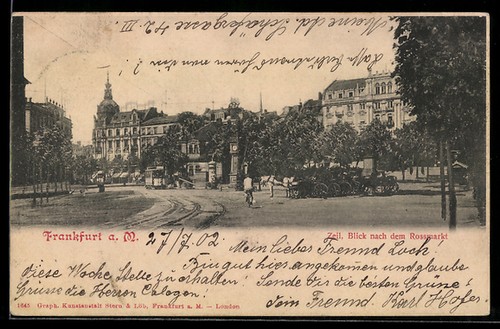 Meine ad. Schäfergasse 42. III.
Laß bald von Dir hören wie es dir geht!
Frankfurt a. M.
Zeil, Blick nach dem Rossmarkt
27/7.02
Mein lieber Freund Lock!
Bin gut hier angekommen und glaube
diese Woche Stelle zu erhalten! Sende Dir die besten Grüsse!
Grüsse die Herren Collegen!
Dein Freund. Karl Hofer.
1543 Graph. Kunstanstalt Stern & Löb, Frankfurt a. M. — London